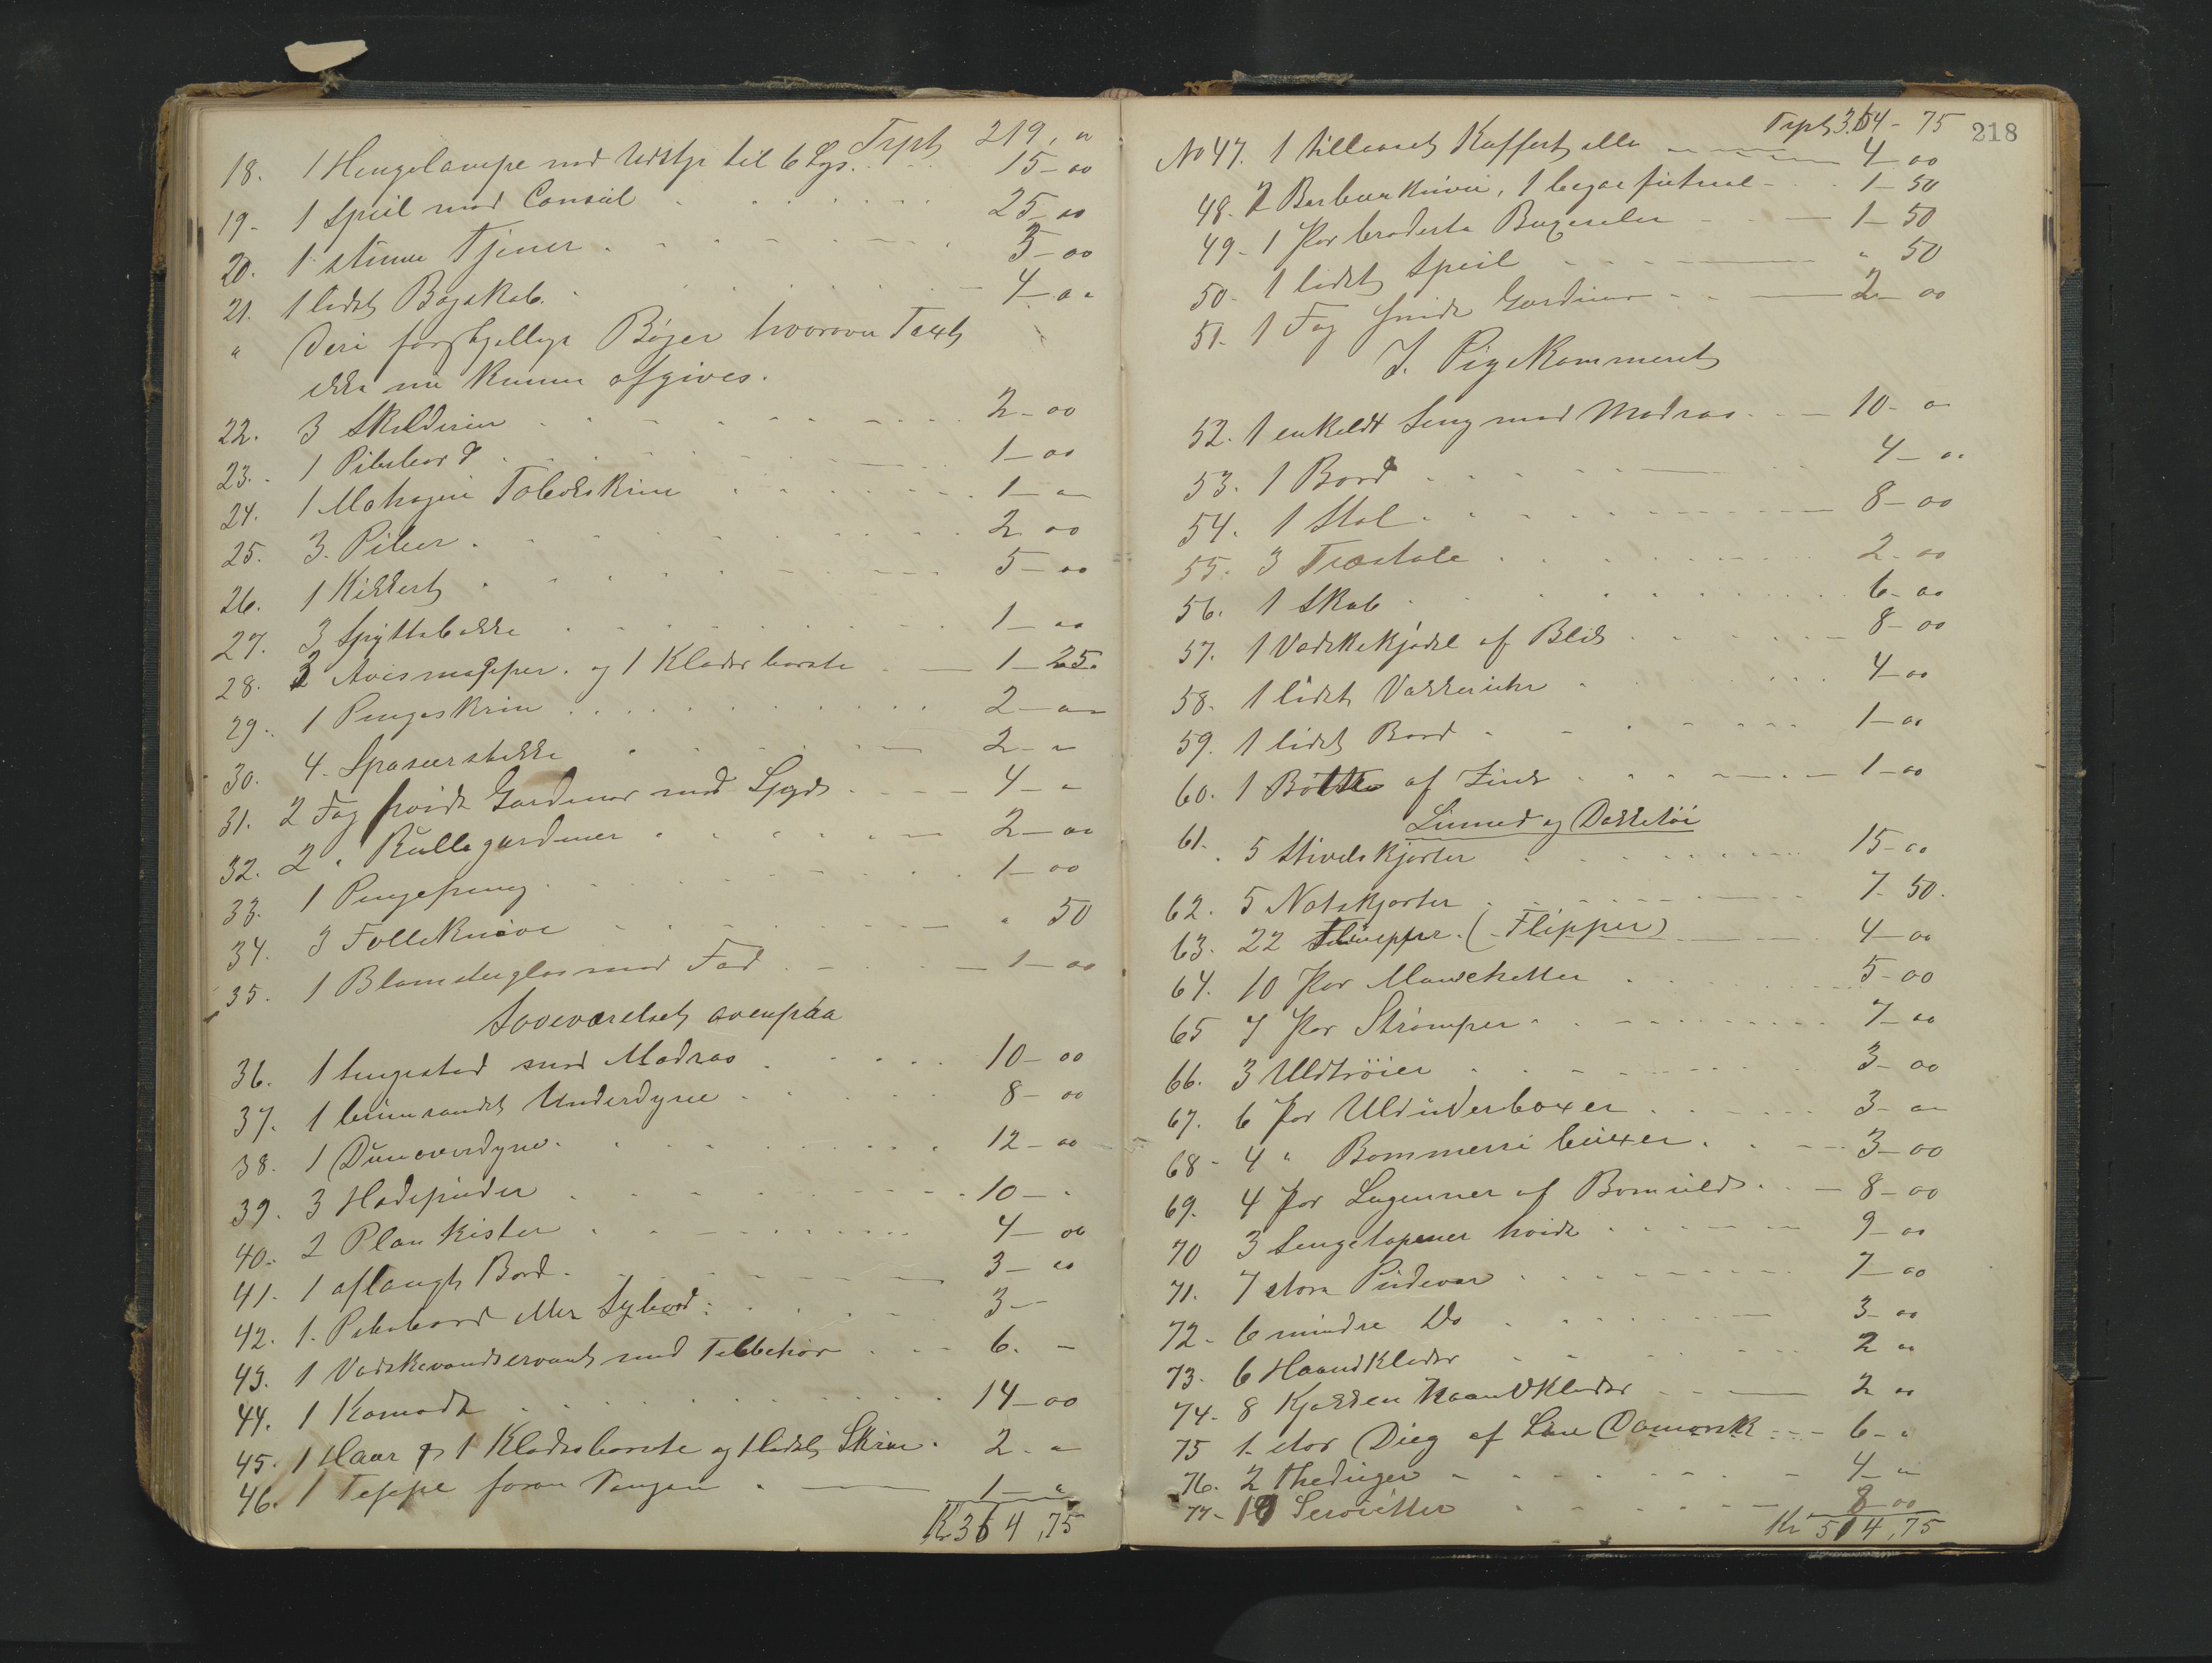 Trpt 219, "
18. 1 Hengelampe med Udstyr til 6 Lys. 15-00
19- 1 Speil med Consul 25-00
20. 1 stum Tjener 5-00
21. 1 lidet Bogskab. 4-00
" Deri forskjellige Bøger hvorover Taxt
ikke nu kunne afgives.
22. 3 Skilderier 2-00
23. 1 Pibebord 1-00
24. 1 Mahogni Tobakskrin 1-00
25. 3. Piber 2 00
26. 1 Kikkert 5-00
27. 3 Spyttebakke 1-00
28. 2 Avismapper. og 1 Klædesbørste 1-25.
29. 1 Pengeskrin 2-00
30. 4. Spaserstokke 2-"
31. 2 Fag hvide Gardiner med 4-"
32. 2 " Rullegardiner 2-00
33. 1 Pengepung 1-00
34. 3 Folleknive " 50
35. 1 Blomsterglas med Fad 1-00
Soveværelset ovenpaa
36. 1 Sengested med Madras 10-00
37. 1 brunrandet Underdyne 8-00
38. 1 Dunoverdyne. 12-00
39. 3 Hodepuder 10-"
40. 2 Plankister 4-00
41. 1 aflangt Bord 3-00
42. 1. Pibebord eller Sybord: 3-
43. 1 Vaskevandservant med Tilbehør 6. -
44. 1 Komode 14-00
45. 1 Haar & 1 Klædesbørste og 1 lidet Skrin. 2-"
46. 1 Teppe foran Sengen 1-"
Kr 364,75
Trpt 364-75
218
No 47. 1 Kuffert 4 00
48. 2 Barberknive, 1 1-50
49- 1 Par broderte Buxeseler 1-50
50- 1 lidet Speil " 50
51- 1 Fag hvide Gardiner 2-00
I. Pigekammeret
52. 1 enkelt Seng med Madras 10-"
53. 1 Bord 4-00
54. 1 Stol 8-00
55. 3 Træstole 2-00
56. 1 Skab 6-00
57. 1 Vaskekjedel af Blik 8-00
58. 1 lidet Vækkeruhr 4-00
59. 1 lidet Bord 1-00
60. 1 Bøtte af Zink 1-00
Linned og Dækketøi
61. 5 Stivelskjorter 15-00
62. 5 Natskjorter 7-50.
63. 22 (Flipper) 4-00
64. 10 Par Manchetter 5-00
65 7 Par Strømper 7-00
66. 3 Uldtrøier 3-00
67. 6 Par Uldunderboxer 3-00
68- 4 " Bommersi buxer. 3-00
69. 4 Par Lagenner af Bomuld 8-00
70 3 Sengetapener hvide 9-00
71. 7 store Pudevar 7-00
72- 6 mindre Do 3-00
73- 6 Haandklæder 2 00
74- 8 Kjøkken Haandklæder 2 00
75 1 stor Dug af Lin Damarsk 6-"
76. 2 Theduger 4-00
77- 10 Servietter 8 00
Kr 514,75